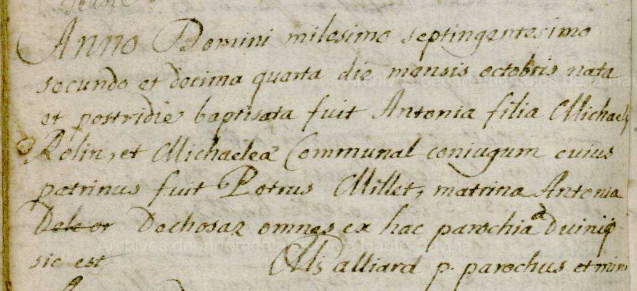 Anno Domini milesimo septingentesimo
secundo et decima quarta die mensis octobris nata
et postridie baptisata fuit Antonia filia Michaelis
Rolin, et Michaelea Communal coniugum cuius
patrinus fuit Petrus Millet, matrina Antonia
Dechosaz omnes ex hac parochia
sic est alliard p. parochus et